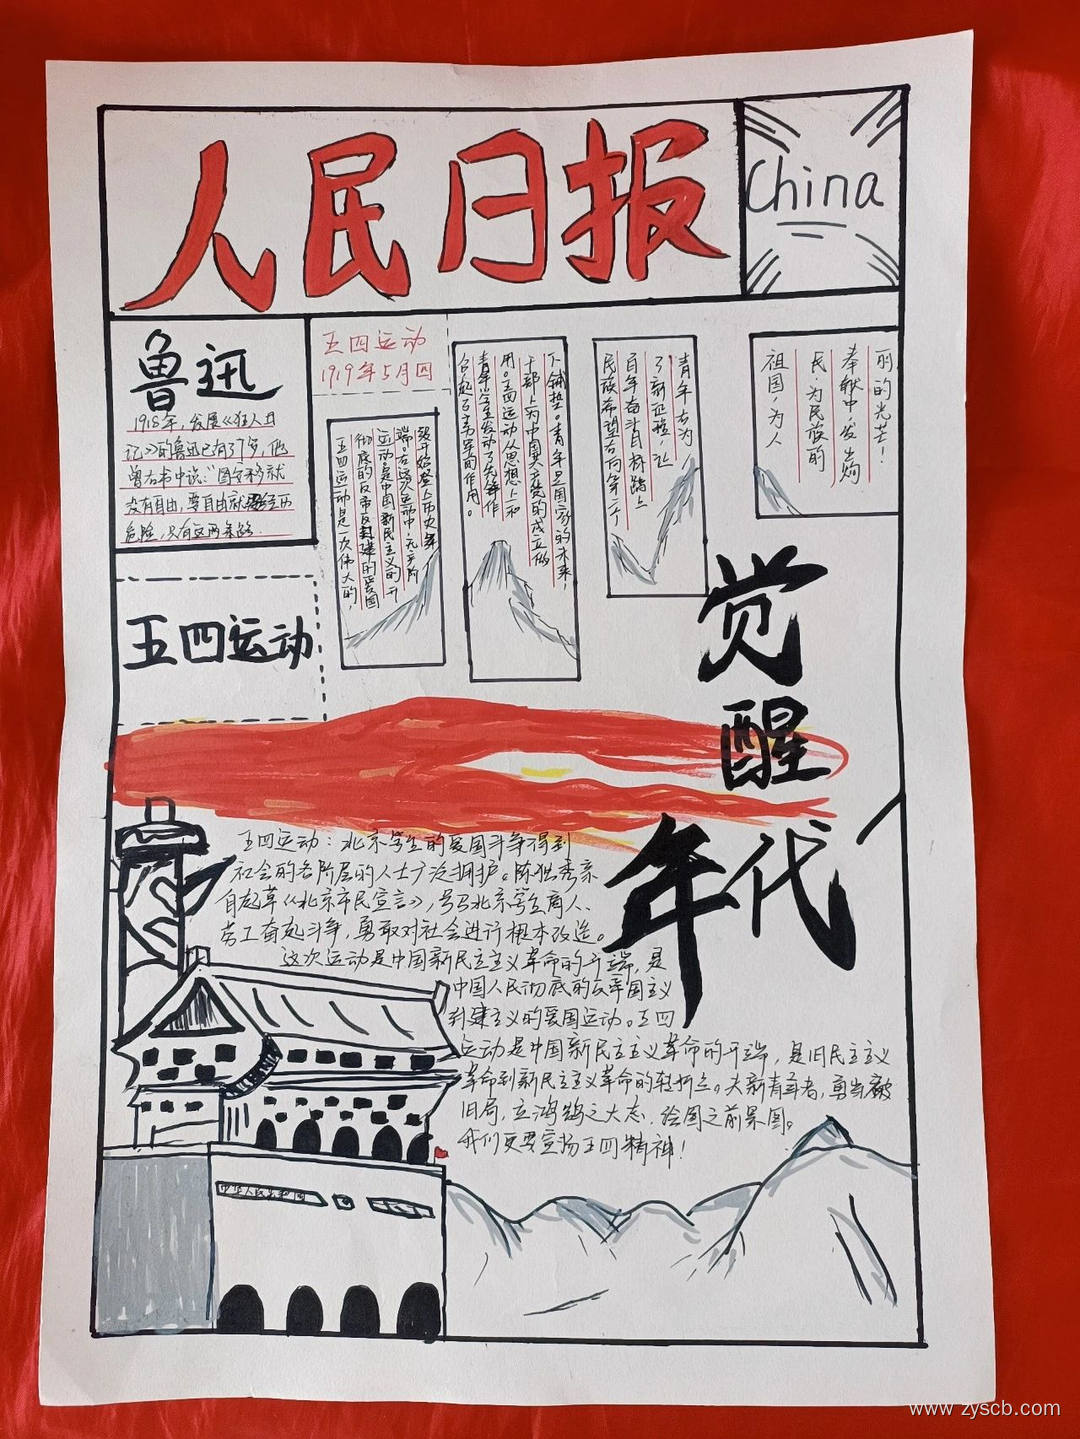 人民日报
China
鲁迅
1918年，发展《狂人日
记》的鲁迅已有37岁，他
曾在书中说："图安移就
没有自由，要自由就要经历
危险，只有这两条路.
五四运动
1919年5月四
五四运动是一次伟大的，
彻底的反帝反封建的爱国
运动，是中国新民主主义的开
端。在这次运动中，无产阶
级开始登上历史舞
台，起了主力军的作用。
青年学生发动了先锋作
用。五四运动从思想上和
干部上为中国共产党的成立做
下铺垫。青年是国家的未来，
民族希望。向第二个
百年奋斗目标踏上
了新征程，让
青年去为
祖国，为人
民，为民族的
奉献中，发出绚
丽的光芒！
五四运动
觉醒年代
五四运动：北京学生的爱国斗争得到
社会的各阶层的人士广泛拥护。陈独秀亲
自起草《北京市民宣言》，号召北京学生商人、
劳工奋起斗争，勇敢对社会进行根本改造。
这次运动是中国新民主主义革命的开端，是
中国人民彻底的反帝国主义
封建主义的爱国运动。五四
运动是中国新民主主义革命的开端，是旧民主主义
革命到新民主主义革命的转折点。大新青年者，勇当破
旧局，立鸿鹄之大志，绘图之前景图。
我们更要宣扬五四精神！
中华人民共和国
www.zyscb.com